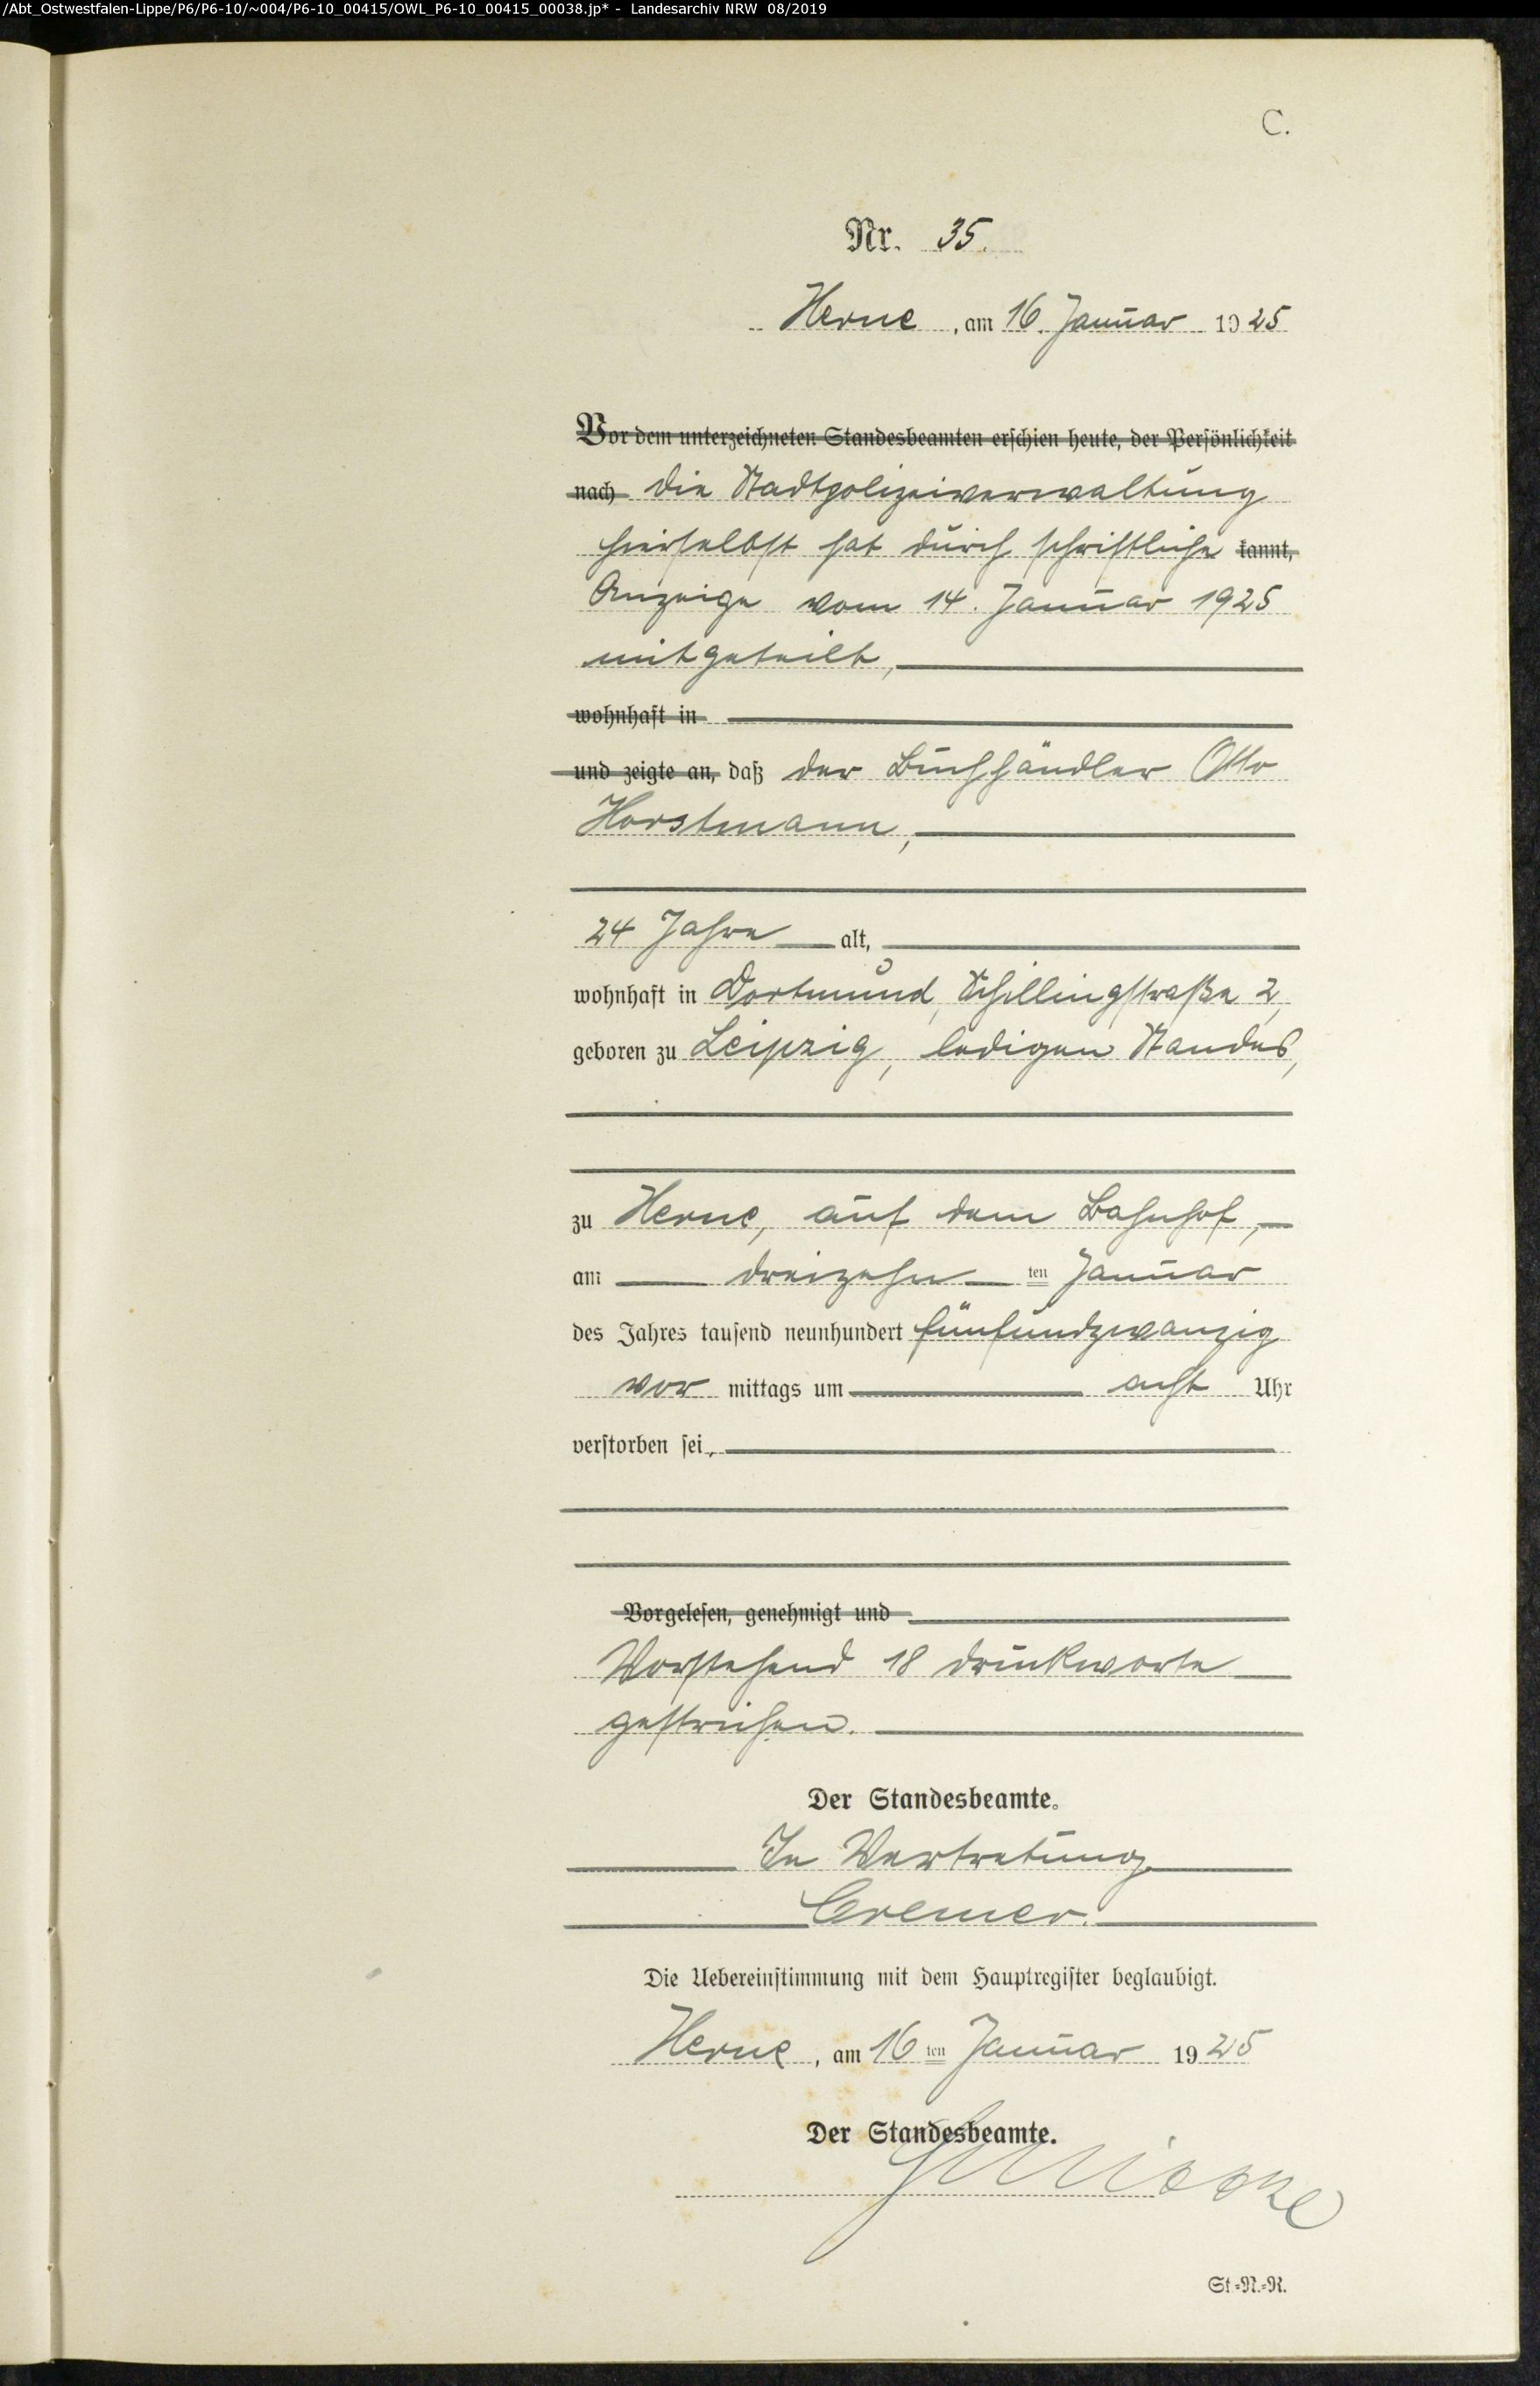 /Abt_Ostwestfalen-Lippe/P6/P6-10/~004/P6-10_00415/OWL_P6-10_00415_00038.jp* - Landesarchiv NRW 08/2019
C.
Nr. 35.
Herne, am 16. Januar 1925
Vor dem unterzeichneten Standesbeamten erschien heute, der Persönlichkeit
nach die Stadtpolizeiverwaltung
hierselbst hat durch schriftliche kannt,
Anzeige vom 14. Januar 1925
mitgeteilt,
wohnhaft in
und zeigte an, daß der Buchhändler Otto
Horstmann,
24 Jahre alt,
wohnhaft in Dortmund, Schillingstraße 2,
geboren zu Leipzig, ledigen Standes,
zu Herne, auf dem Bahnhof,
am dreizehn ten Januar
des Jahres tausend neunhundert fünfundzwanzig
vor mittags um acht Uhr
verstorben sei.
Vorgelesen, genehmigt und
Vorstehend 18 Druckworte
gestrichen.
Der Standesbeamte.
In Vertretung
Cremer.
Die Uebereinstimmung mit dem Hauptregister beglaubigt.
Herne, am 16 ten Januar 1925
Der Standesbeamte.
St.=N.=R.